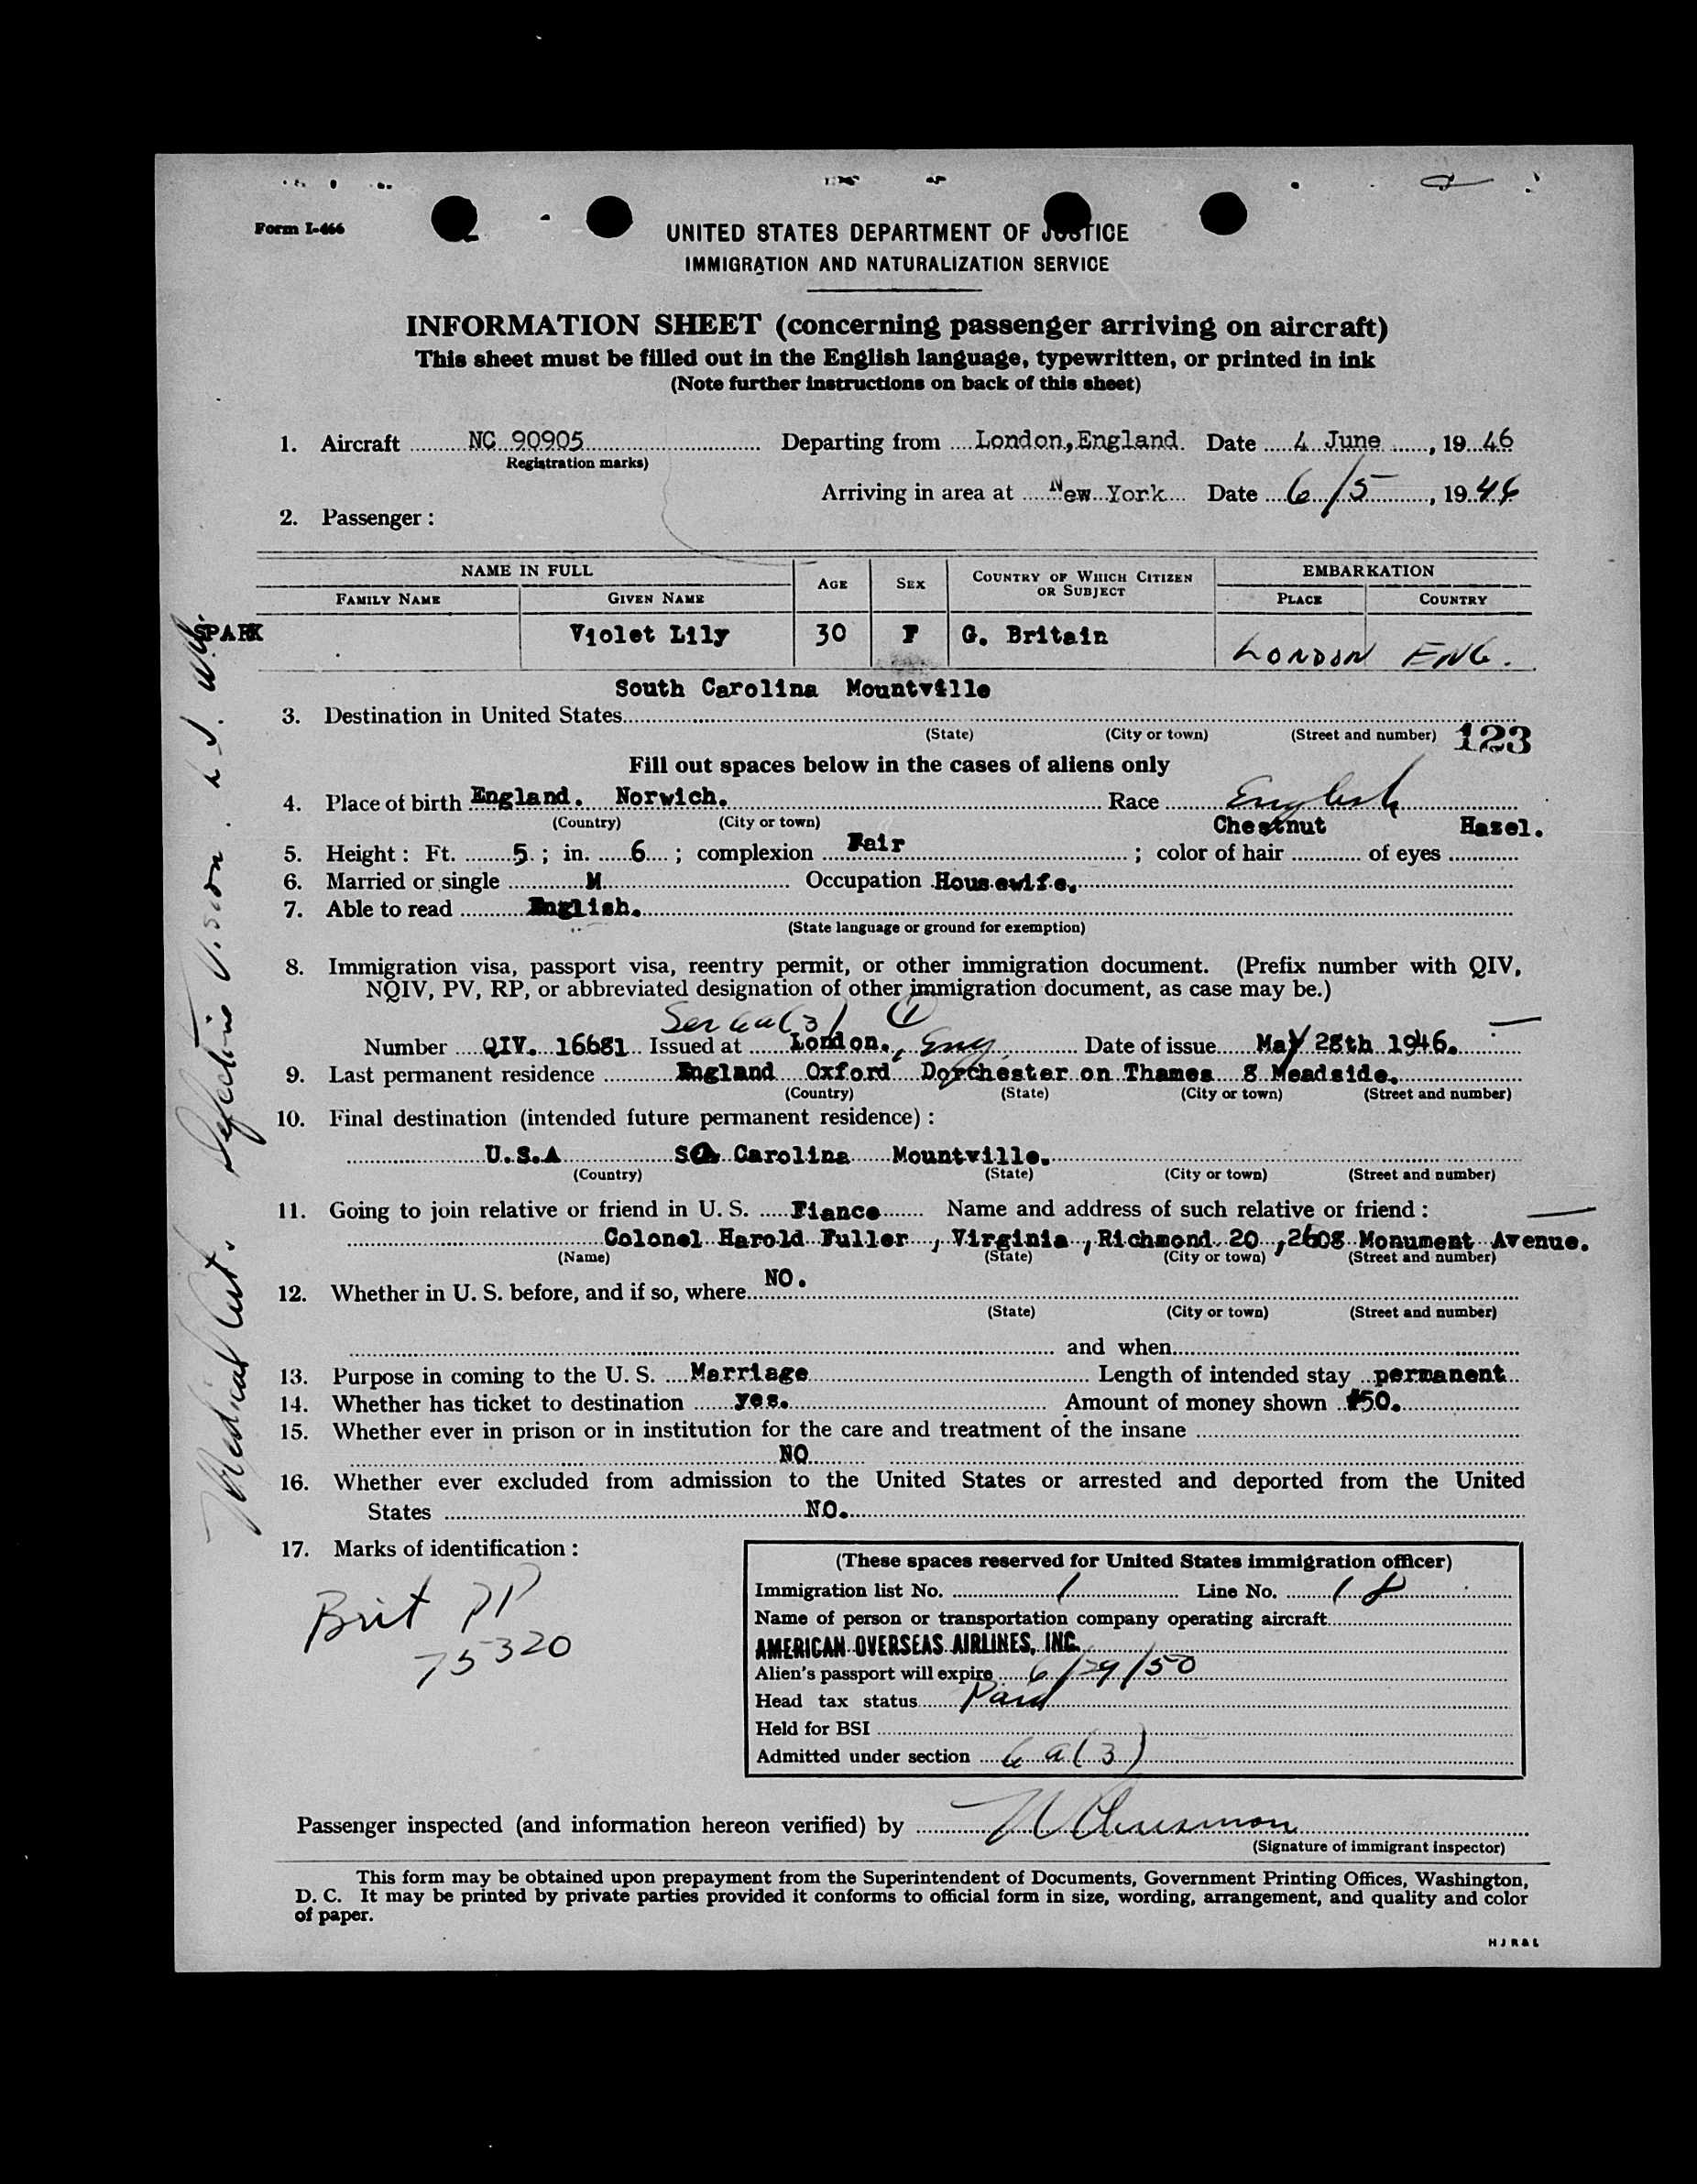 Form I-466
UNITED STATES DEPARTMENT OF JUSTICE
IMMIGRATION AND NATURALIZATION SERVICE
INFORMATION SHEET (concerning passenger arriving on aircraft)
This sheet must be filled out in the English language, typewritten, or printed in ink
(Note further instructions on back of this sheet)
1. Aircraft NC 90905 Departing from London, England. Date 4 June, 19 46
Registration marks)
Arriving in area at New York Date 6/5, 19 46
2. Passenger :
NAME IN FULL AGE SEX COUNTRY OF WHICH CITIZEN OR SUBJECT EMBARKATION
FAMILY NAME GIVEN NAME PLACE COUNTRY
SPARK Violet Lily 30 F G. Britain LONDON ENG.
South Carolina Mountville
3. Destination in United States
(State) (City or town) (Street and number) 123
Fill out spaces below in the cases of aliens only
4. Place of birth England. Norwich. Race English
(Country) (City or town) Chestnut Hazel.
5. Height : Ft. 5 ; in. 6 ; complexion Fair ; color of hair of eyes
6. Married or single M Occupation Housewife.
7. Able to read English.
(State language or ground for exemption)
8. Immigration visa, passport visa, reentry permit, or other immigration document. (Prefix number with QIV,
NQIV, PV, RP, or abbreviated designation of other immigration document, as case may be.)
Sec 6a(3) (1)
Number QIV. 16681 Issued at London., Eng Date of issue May 28th 1946.
9. Last permanent residence England Oxford Dorchester on Thames 8 Meadside.
(Country) (State) (City or town) (Street and number)
10. Final destination (intended future permanent residence) :
U.S.A So. Carolina Mountville.
(Country) (State) (City or town) (Street and number)
11. Going to join relative or friend in U. S. Fiance Name and address of such relative or friend :
Colonel Harold Fuller , Virginia , Richmond 20 , 2608 Monument Avenue.
(Name) (State) (City or town) (Street and number)
12. Whether in U. S. before, and if so, where NO.
(State) (City or town) (Street and number)
and when
13. Purpose in coming to the U. S. Marriage Length of intended stay permanent
14. Whether has ticket to destination yes. Amount of money shown $50.
15. Whether ever in prison or in institution for the care and treatment of the insane
NO
16. Whether ever excluded from admission to the United States or arrested and deported from the United
States NO.
17. Marks of identification :
Brit PP
75320
(These spaces reserved for United States immigration officer)
Immigration list No. 1 Line No. 18
Name of person or transportation company operating aircraft
AMERICAN OVERSEAS AIRLINES, INC.
Alien's passport will expire 6/29/50
Head tax status Paid
Held for BSI
Admitted under section 6 a(3)
Passenger inspected (and information hereon verified) by
(Signature of immigrant inspector)
This form may be obtained upon prepayment from the Superintendent of Documents, Government Printing Offices, Washington,
D. C. It may be printed by private parties provided it conforms to official form in size, wording, arrangement, and quality and color
of paper.
H J R & L
Medical Cert. Defective Vision.